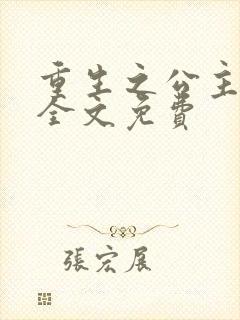 重生之公主
全文免费
張宏展